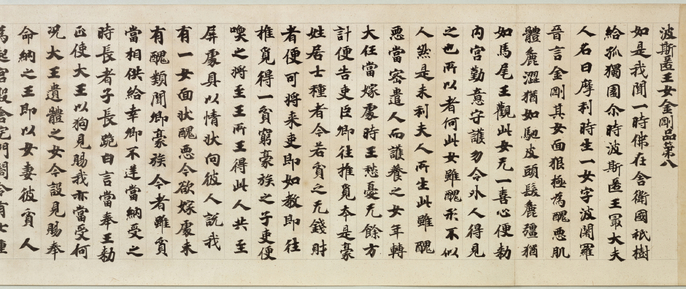 波斯匿王女金剛品第八
如是我聞一時佛在舍衛國祇樹
給孤獨園尒時波斯匿王冣大夫
人名曰摩利時生一女字波闍羅
晉言金剛其女面狠極為醜惡肌
體麁澀猶如駞皮頭髮麁彊猶
如馬尾王觀此女无一喜心便勑
內宮勤意守護勿令外人得見
之也所以者何此女雖醜形不似
人然是末利夫人所生此雖醜
惡當密遣人而護養之女年轉
大任當嫁處時王愁憂无餘方
計便告吏臣卿往推覓本是豪
姓居士種者今若貧乏无錢財
者便可將來吏即如教即往
推覓得一貧窮豪族之子吏便
喚之將至王所王得此人共至
屏處具以情狀向彼人說我
有一女面狀醜惡今欲嫁處未
有酬類聞卿豪族今者雖貧
當相供給幸卿不逆當納受之
時長者子長跪白言當奉王勑
正使大王以狗見賜我亦當受何
況大王遺體之女今設見賜奉
命納之王即以女妻彼貧人
為起宮殿舍宅門閤令有七重